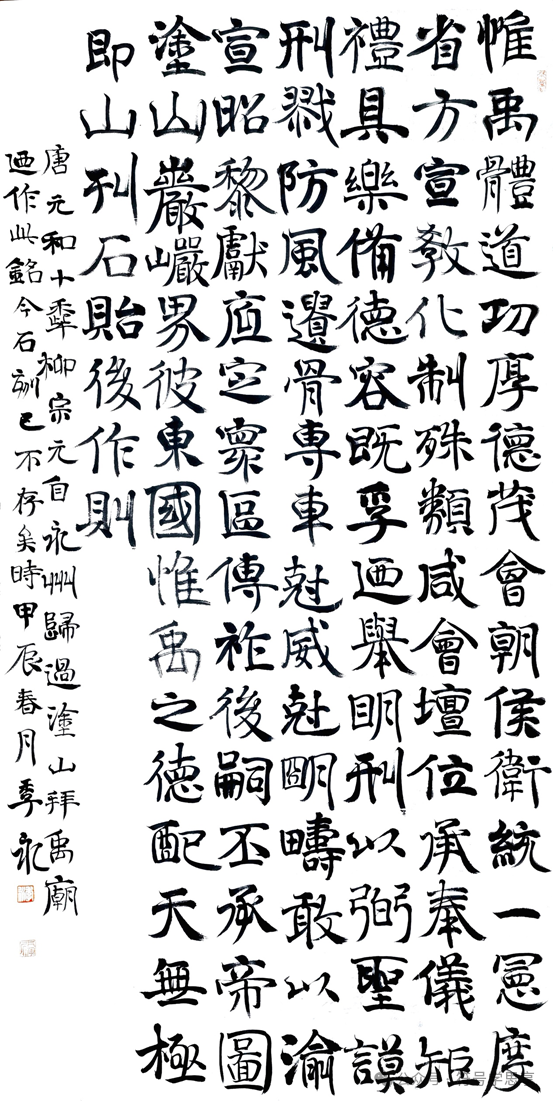 惟禹體道功厚德茂會朝侯衛統一憲度
省方宣教化制殊類咸會壇位承奉儀矩
禮具樂備德容既孚迺舉明刑以弼聖謨
刑戮防風遺骨專車尅威尅朙疇敢以渝
宣昭黎獻底定寰區傳祚後嗣丕承帝圖
塗山巖巖界彼東國惟禹之德配天無極
即山刊石貽後作則
唐元和十年柳宗元自永州歸過塗山拜禹廟
迺作此銘今石刻已不存矣時甲辰春月季永